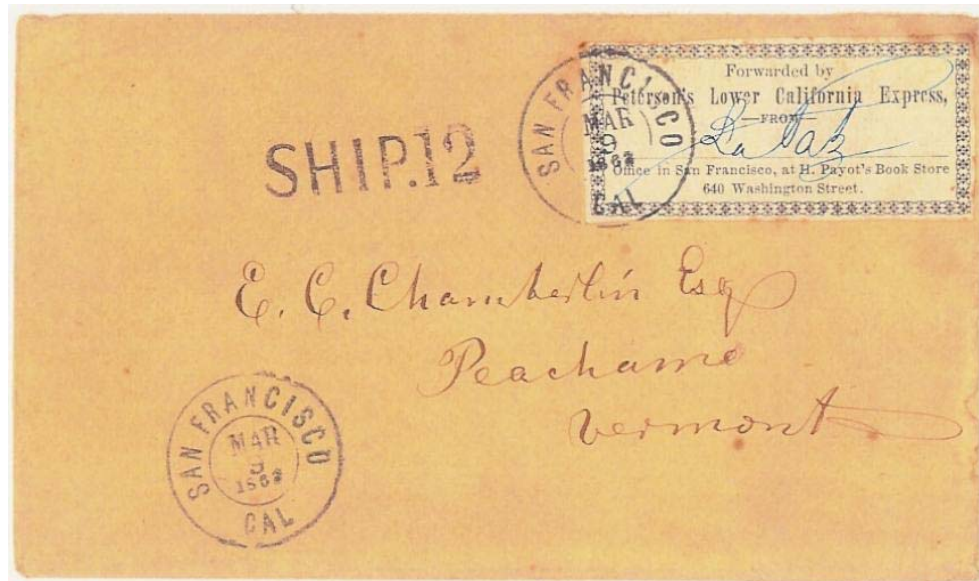 SHIP.12
SAN FRANCISCO
MAR
9
CAL
Forwarded by
Peterson's Lower California Express,
—FROM—
La Paz
Office in San Francisco, at H. Payot's Book Store
640 Washington Street.
E. C. Chamberlin Esq
Peacham
Vermont
SAN FRANCISCO
MAR
9
CAL